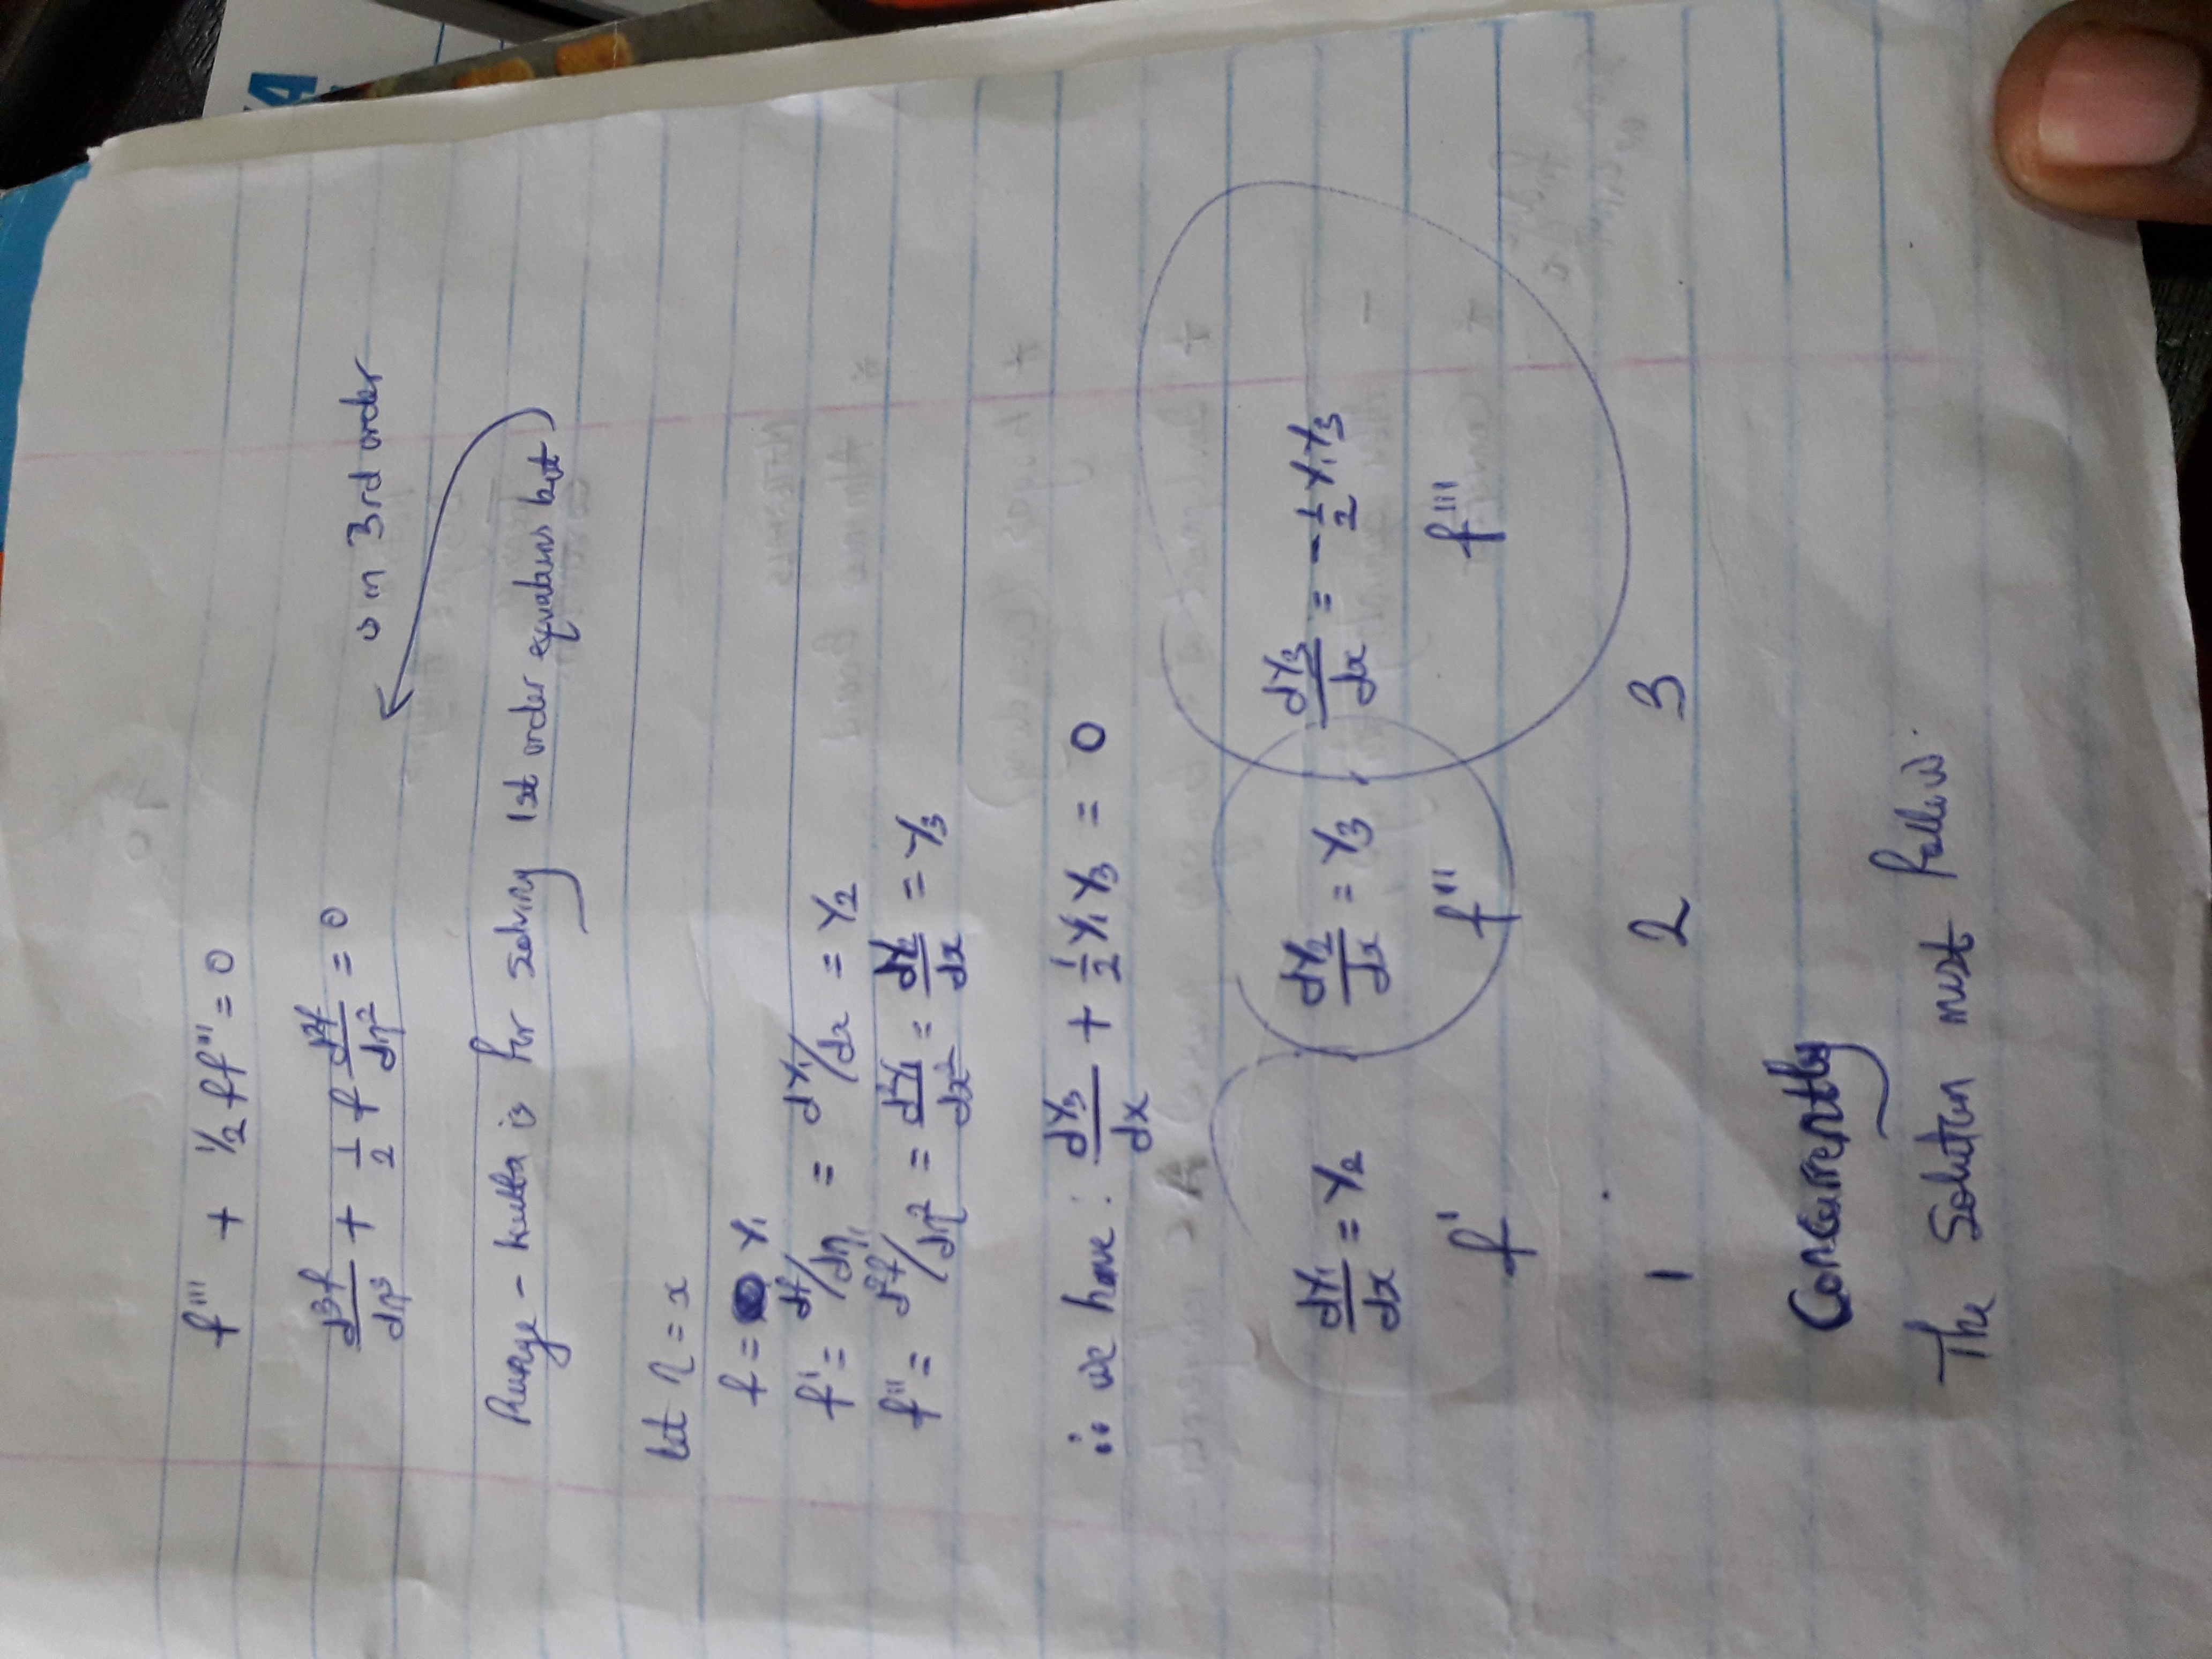 f''' + 1/2 ff''' = 0
d³f/dη³ + 1/2 f d²f/dη² = 0
is in 3rd order
Runge - kutta is for solving 1st order equations but
let η = x
f = Y₁
f' = df/dη = dY₁/dx = Y₂
f'' = d²f/dη² = d²Y₁/dx² = dY₂/dx = Y₃
∴ we have: dY₃/dx + 1/2 Y₁Y₃ = 0
dY₁/dx = Y₂ dY₂/dx = Y₃ dY₃/dx = -1/2 Y₁Y₃
f' f'' f'''
1 2 3
Concurrently
The Solution must follow.